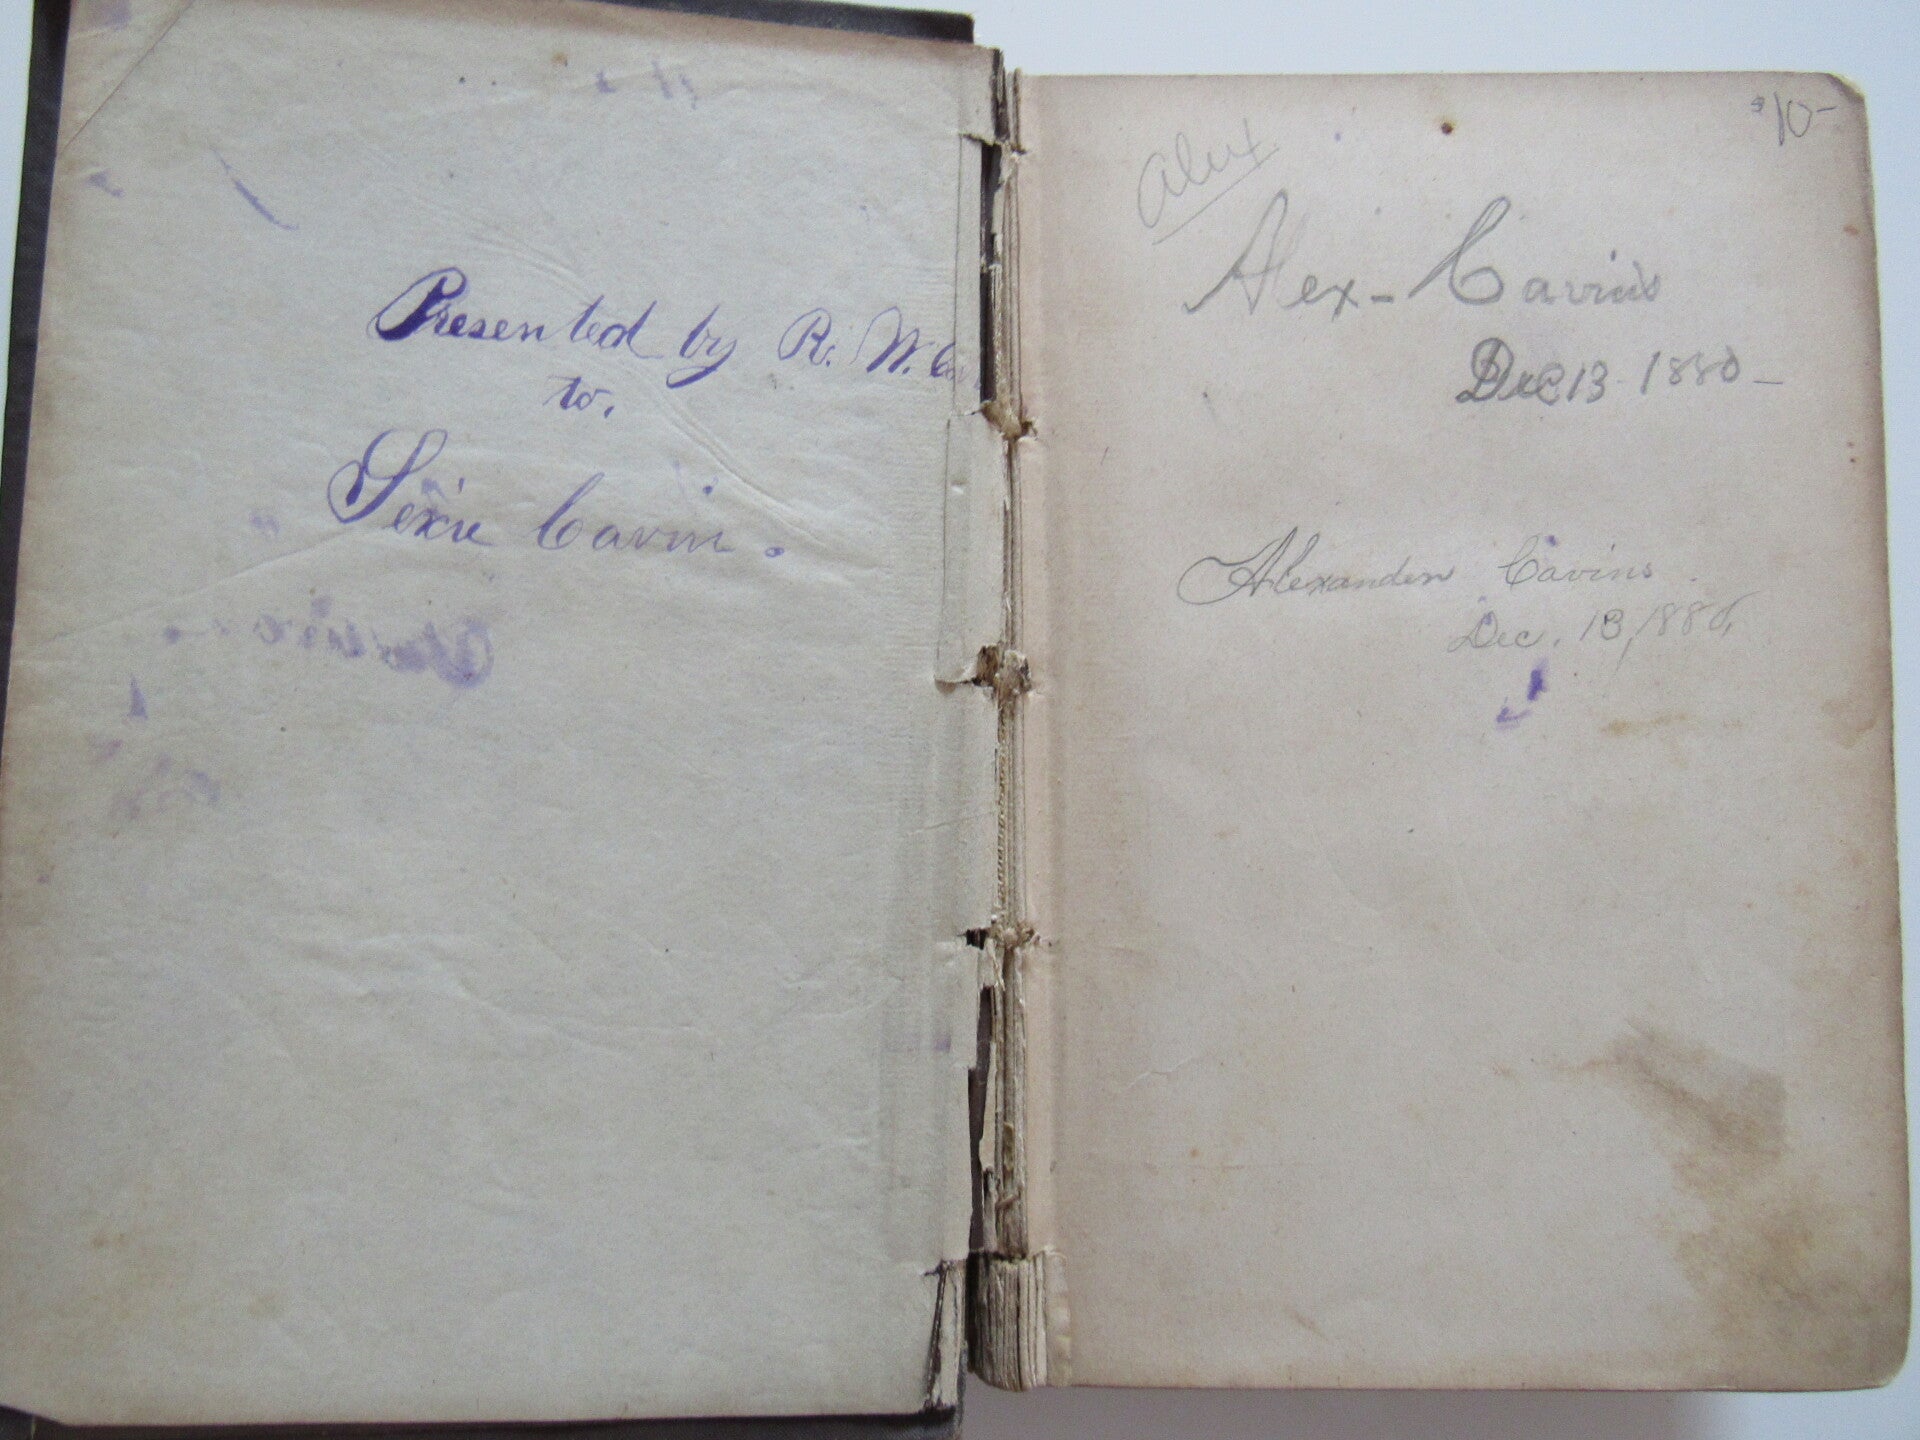 Presented by R. W.
to.
Cavin.
alex
$10-
Alex - Cavins
Dec 13 - 1880 -
Alexander Cavins
Dec. 13, 1880,